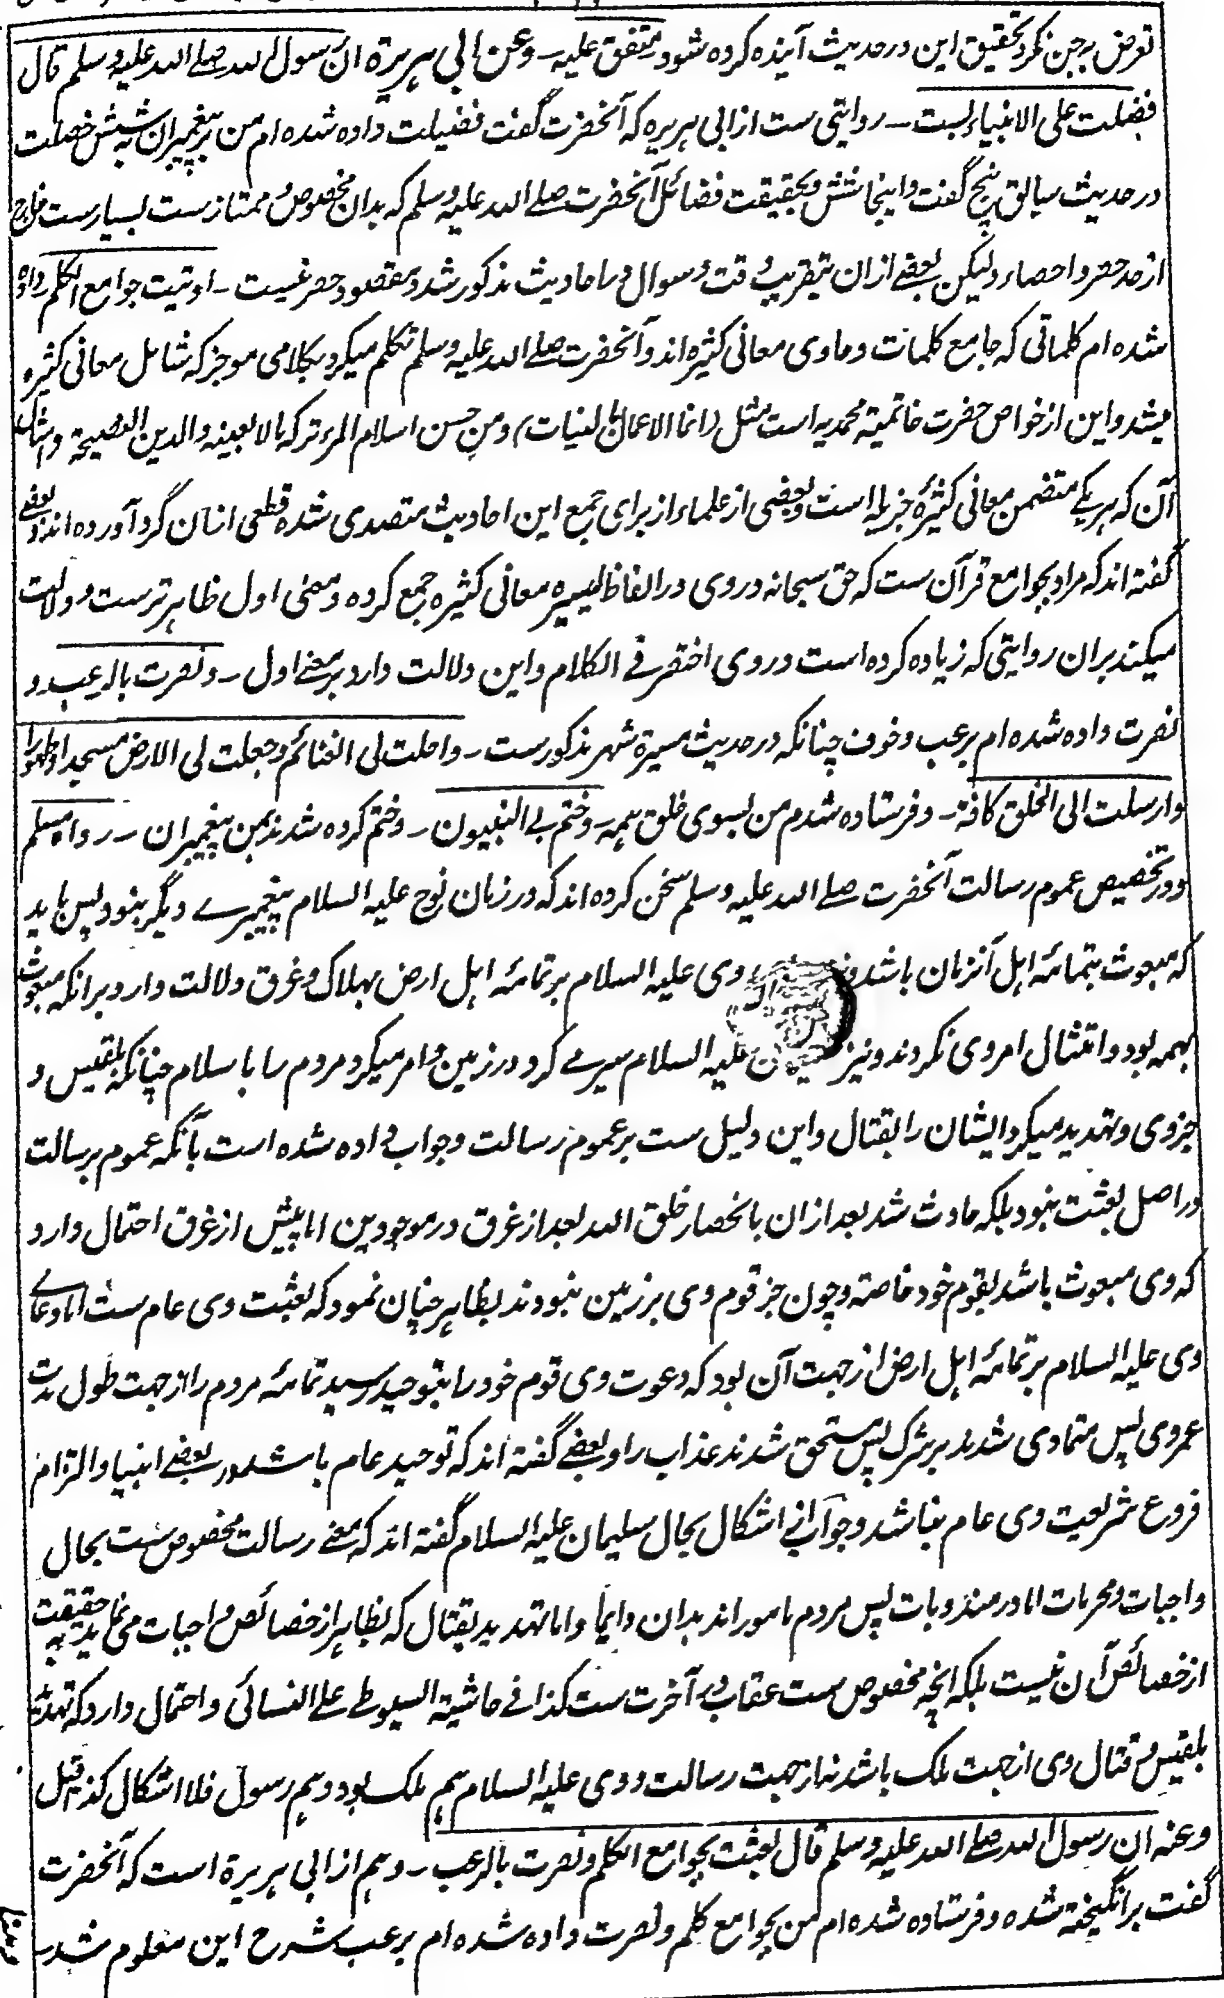 تعرض بجن نکرد تحقیق این در حدیث آینده کرده شود متفق علیه۔ وعن ابی هریرة ان رسول الله صلے الله علیه وسلم قال
فضلت علی الانبیاء بست۔ روایتی ست از ابی هریره که آنحضرت گفت فضیلت داده شده ام من بر پیغمبران بشش خصلت
در حدیث سابق پنج گفت و اینجا شش و بحقیقت فضائل آنحضرت صلے الله علیه وسلم که بدان مخصوص و ممتاز ست بسیار ست خارج
از حد حصر و احصاء ولیکن بعضے ازان بتقریب وقت و سوال در احادیث مذکور شد و مقصود حصر نیست۔ اوتیت جوامع الکلم داده
شده ام کلماتی که جامع کلمات و حاوی معانی کثیره اند و آنحضرت صلے الله علیه وسلم تکلم میکرد بکلامی موجز که شامل معانی کثیره
میشد و این از خواص حضرت خاتمیه محمدیه است مثل (انما الاعمال بالنیات) و من حسن اسلام المرء ترکه مالا یعنیه والدین النصیحة و امثال
آن که هر یکے متضمن معانی کثیرهٔ جزیله است و بعضی از علماء از برای جمع این احادیث متصدی شده قطعی ازان گرد آورده اند و بعضے
گفته اند که مراد بجوامع قرآن ست که حق سبحانه در وی در الفاظ یسیره معانی کثیره جمع کرده و معنی اول ظاهر ترست و دلالت
میکند بران روایتی که زیاده کرده است در وی اختصر فے الکلام و این دلالت دارد بر معنے اول۔ ونصرت بالرعب و
نصرت داده شده ام برعب و خوف چنانکه در حدیث مسیرة شهر مذکورست۔ واحلت لی الغنائم وجعلت لی الارض مسجدا وطهورا
وارسلت الی الخلق کافة۔ و فرستاده شدم من بسوی خلق همه۔ وختم بی النبیون۔ و ختم کرده شدند بمن پیغمبران۔ رواه مسلم
و در تخصیص عموم رسالت آنحضرت صلے الله علیه وسلم سخن کرده اند که در زمان نوح علیه السلام پیغمبرے دیگر نبود پس باید
که مبعوث بتمامهٔ اهل آنزمان باشد وی علیه السلام بر تمامهٔ اهل ارض بهلاک و غرق دلالت دارد برانکه مبعوث
بهمه بود و امتثال امر وی نکردند و نیز علیه السلام سیرے کرد در زمین و امر میکرد مردم را باسلام چنانکه بلقیس و
جز وی و تهدید میکرد ایشان را بقتال و این دلیل ست بر عموم رسالت و جواب داده شده است بآنکه عموم رسالت
در اصل بعثت نبود بلکه حادث شد بعد ازان بانحصار خلق الله بعد از غرق در موجودین اما پیش از غرق احتمال دارد
که وی مبعوث باشد بقوم خود خاصة و چون جز قوم وی بر زمین نبودند بظاهر چنان نمود که بعثت وی عام ست اما دعاے
وی علیه السلام بر تمامهٔ اهل ارض از جهت آن بود که دعوت وی قوم خود را بتوحید رسید تمامهٔ مردم را از جهت طول مدت
عمر وی پس متمادی شدند بر شرک پس مستحق شدند عذاب را و بعضے گفته اند که توحید عام باشد در بعضے انبیا و التزام
فروع شریعت وی عام نباشد و جواب از اشکال بحال سلیمان علیه السلام گفته اند که معنے رسالت مخصوص ست بحال
واجبات و محرمات اما در مندوبات پس مردم مامور اند بدان دایما و اما تهدید بقتال که بظاهر از خصائص واجبات می نماید بحقیقت
از خصائص آن نیست بلکه آنچه مخصوص ست عقاب در آخرت ست کذا فے حاشیة السیوطے علے النسائی و احتمال دارد که تهدید
بلقیس و قتال وی از جهت ملک باشد نه از جهت رسالت و وی علیه السلام هم ملک بود و هم رسول فلا اشکال کذا قیل
وعنه ان رسول الله صلے الله علیه وسلم قال بعثت بجوامع الکلم ونصرت بالرعب۔ و هم از ابی هریرة است که آنحضرت
گفت برانگیخته شده و فرستاده شده ام من بجوامع کلم و نصرت داده شده ام برعب شرح این معلوم شد۔